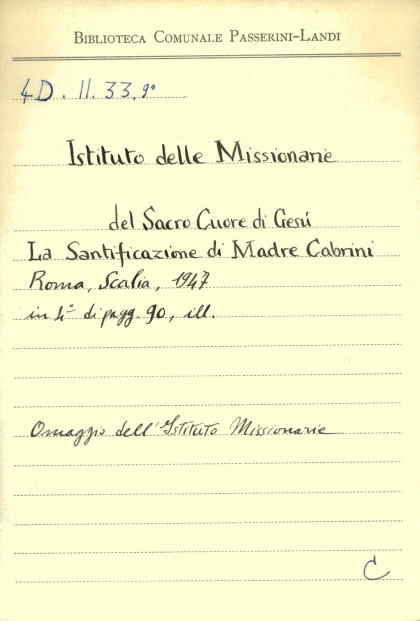 BIBLIOTECA COMUNALE PASSERINI-LANDI
4D. II. 33, 9°
Istituto delle Missionarie
del Sacro Cuore di Gesú
La Santificazione di Madre Cabrini
Roma, Scalia, 1947
in 4° di pagg. 90, ill.
Omaggio dell'Istituto Missionarie
C